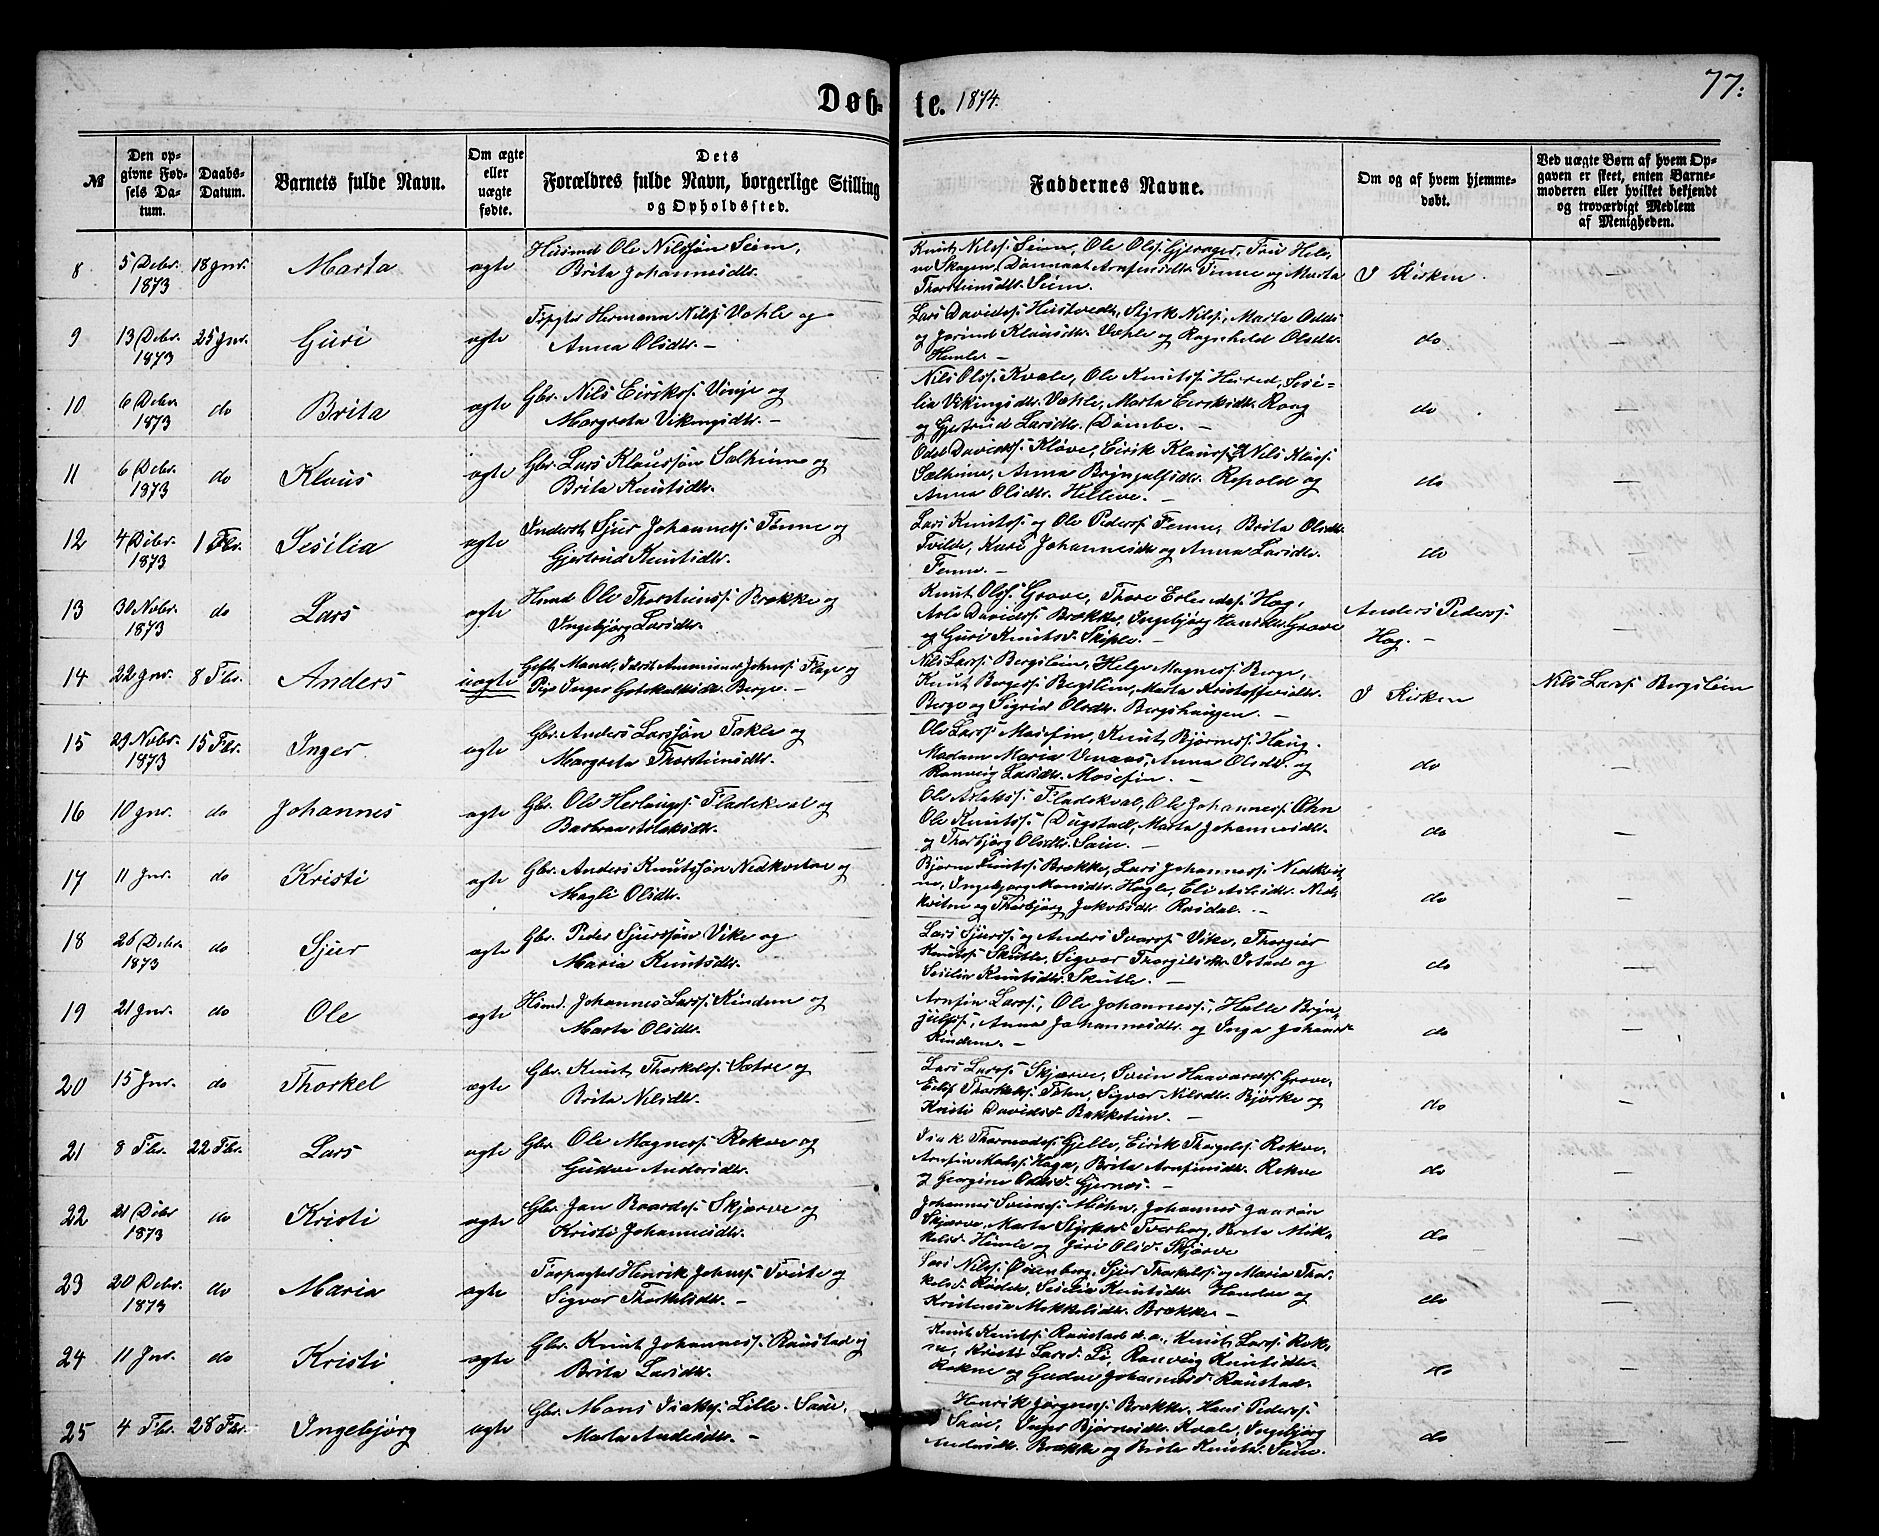 77.
Døbte. 1874.
№
Den opgivne Fødsels Datum.
Daabs-Datum.
Barnets fulde Navn.
Om ægte eller uægte fødte.
Dets Forældres fulde Navn, borgerlige Stilling og Opholdssted.
Faddernes Navne.
Om og af hvem hjemmedøbt.
Ved uægte Børn af hvem Opgaven er skeet, enten Barnemoderen eller hvilket bekjendt og troværdigt Medlem af Menigheden.
8 5 Debr. 1873 18 Jnr. Marta ægte
Husmd Ole Nilssøn Seim,
Brita Johannesdtr.
Knut Nilss. Seim, Ole Olss. Gjerager,
Thorsteinsdtr. Seim.
I Kirken
9 13 Debr. 1873 25 Jnr. Guri ægte
Hermann Nilss. Væhle og
Anna Olsdtr. —
Lars Davidss. Hustvedt, Styrk Nilss., Marta Odds
og Jorind Klausdtr. Væhle og Ragnhild Olsdtr.
Himle. —
do
10 6 Debr. 1873 do Brita ægte
Gbr. Nils Eirikss. Vinje og
Margreta Vikingsdtr. —
Nils Olss. Kvale, Ole Knutss. Herred, Sesi-
lia Vikingsdtr. Væhle, Marta Eiriksdtr. Rong
og Gjertrud Larsdtr. Dømbe. —
do
11 6 Debr. 1873 do Klaus ægte
Gbr. Lars Klaussøn Sælhime og
Brita Knutsdtr.
Odd Davidss. Kløve, Eirik Klauss. og Nils Klass.
Sælhime, Anna Brynjulfsdtr. Repold og
Anna Olsdtr. Helleve. —
do
12 4 Debr. 1873 1 Fbr. Sesilia ægte
Inderst Sjur Johanness. Fenne og
Gjertrud Knutsdtr.
Lars Knutss. og Ole Pederss. Fenne, Brita Olsdtr.
Tvilde, Kari Johannesdtr. og Anna Larsdtr.
Fenne. —
do
13 30 Novbr. 1873 do Lars ægte
Husmd Ole Thorsteinss. Brække og
Ingebjørg Larsdtr.
Knut Olss. Grove, Thore Erlendss. Hæg,
Arle Davidss. Brække, Ingebjørg Hansdtr. Grove
og Guri Knutsd. Skiple. —
Anders Pederss.
Hæg. —
14 22 Jnr. 8 Fbr. Anders uægte
Gift Mand, Anders Johnss. Flage og
Pige Inger Gotskalksdtr. Berge. —
Nils Larss. Bergslien, Helge Magness. Berge,
Knut Bergess. Bergslien, Marta Kristoffersdtr.
Berge og Sigrid Olsdtr. Bergshaugen. —
I Kirken
Nils Larss. Bergslien
15 29 Novbr. 1873 15 Fbr. Inger ægte
Gbr. Anders Larssøn Takle og
Margreta Thorsteinsdtr.
Ole Larss. Mosefin, Knut Bjørness. Haug.
Madam Maria Vinaas, Anna Olsdtr. og
Ranveig Larsdtr. Mosefin. —
do —
16 10 Jnr. do Johannes ægte
Gbr. Ole Herlaugss. Fladekval og
Barbraa Aslaksdtr.
Ole Aslakss. Fladekval, Ole Johanness. Øhn
Ole Knutss. Dugstad, Marta Johannesdtr.
og Thorbjørg Olsdtr. Saue. —
do —
17 11 Jnr. do Kristi ægte
Gbr. Anders Knutssøn Nedkvitne og
Magli Olsdtr.
Bjørne Knutss. Brække, Lars Johanness. Nedkvit-
ne, Ingebjørg Monsdtr. Hagle, Eli Arlsdtr. Ned-
kvitne og Thorbjørg Jakobsdtr. Rasdal. —
do —
18 26 Debr. 1873 do Sjur ægte
Gbr. Peder Sjurssøn Vike og
Maria Knutsdtr.
Lars Sjurss. og Anders Ivarss. Vike, Thorgier
Knutss. Skutle, Sigvor Thorgilsdtr. Istad og
Sesilia Knutsdtr. Skutle. —
do —
19 21 Jnr. do Ole ægte
Husmd. Johannes Larss. Kindem og
Marta Olsdtr.
Arnfin Larss., Ole Johanness., Halle Brynj-
julfss., Anna Johannesdtr. og Inga Johansd
Kindem. —
do —
20 15 Jnr. do Thorkel ægte
Gbr. Knut Thorkelss. Sætre og
Brita Nilsdtr.
Lars Larss. Skjærve, Svein Haavardss. Grove,
Eilif Thorkelss. Føhn, Sigvor Nilsdtr. Bjørke og
Kristi Davidsd. Bakketun. —
do —
21 8 Fbr. 22 Fbr. Lars ægte
Gbr. Ole Magness. Rekve og
Gudve Andersdtr.
Isak Thormodss. Gjelle, Eirik Thorgelss. Rekve,
Arnfin Madss. Haga, Brita Arnfinsdtr. Rekve
og Georgine Oddsd. Gjernes. —
do —
22 21 Debr 1873 do Kristi ægte
Gbr. Jan Baardss. Skjærve og
Kristi Johannesdtr.
Johannes Sveinss. Møhn, Johannes Jansøn
Skjærve, Marta Styrksdtr. Tverberg, Brita Mik-
kelsd. Himle og Guri Olsd. Skjærve
do —
23 20 Debr. 1873 do Maria ægte
Forpagter Henrik Johnss. Tvite og
Sigvor Thorkelsdtr. —
Lars Nilss. Øvenberg, Sjur Thorkelss. og Maria Thor-
kelsd. Rødek, Sesilia Knutsdtr. Hondve og
Kristensa Mikkelsdtr. Brække —
do —
24 11 Jnr. do Kristi ægte
Gbr. Knut Johanness. Raustad og
Brita Larsdtr.
Knut Knutss. Raustad d.a., Knut Larss. Rok-
ne, Kristi Larsd. Li, Ranveig Knutsdtr.
Rokne og Gudve Johannesd. Raustad.
do —
25 4 Fbr. 28 Fbr. Ingebjørg ægte
Gbr. Mons Isakss. Lille-Saue,
Marta Andersdtr. —
Henrik Jørgenss. Brække, Hans Pederss.
Saue, Inger Bjørnsdtr. Kvale, Ingebjørg
Andersdtr. Brække og Brita Knutsd. Saue.
do —